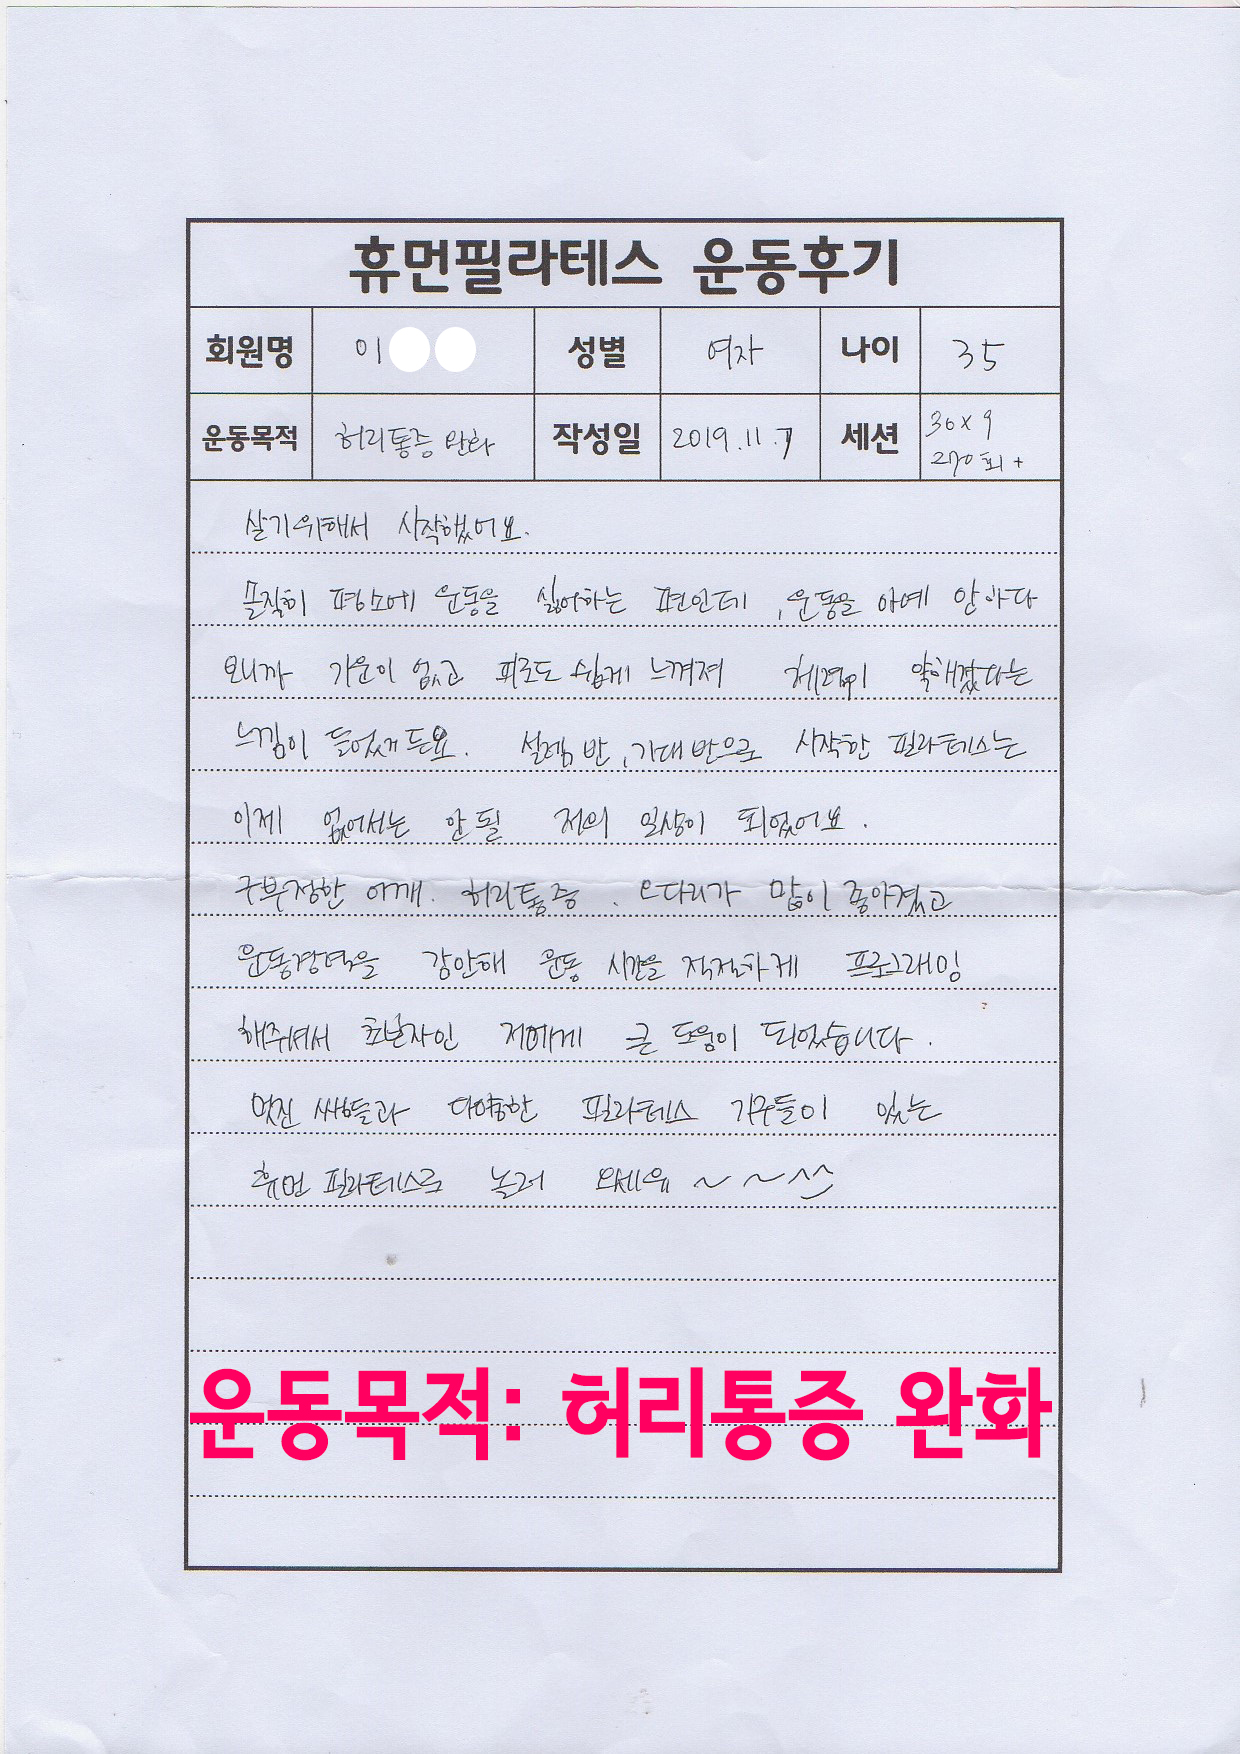 휴먼필라테스 운동후기
회원명 이 성별 여자 나이 35
운동목적 허리통증 완화 작성일 2019.11.7 세션 30x9 270회+
살기위해서 시작했어요.
솔직히 평소에 운동을 싫어하는 편인데, 운동을 아예 안하다
보니까 기운이 없고 피로도 쉽게 느껴져 체력이 약해졌다는
느낌이 들었거든요. 설렘반, 기대반으로 시작한 필라테스는
이제 없어서는 안될 저의 일상이 되었어요.
구부정한 어깨. 허리통증. O다리가 많이 좋아졌고
운동경력을 감안해 운동 시간을 적절하게 프로그래밍
해주셔서 초보자인 저에게 큰 도움이 되었습니다.
멋진 쌤들과 다양한 필라테스 기구들이 있는
휴먼 필라테스로 놀러 오세유~~^^
운동목적: 허리통증 완화